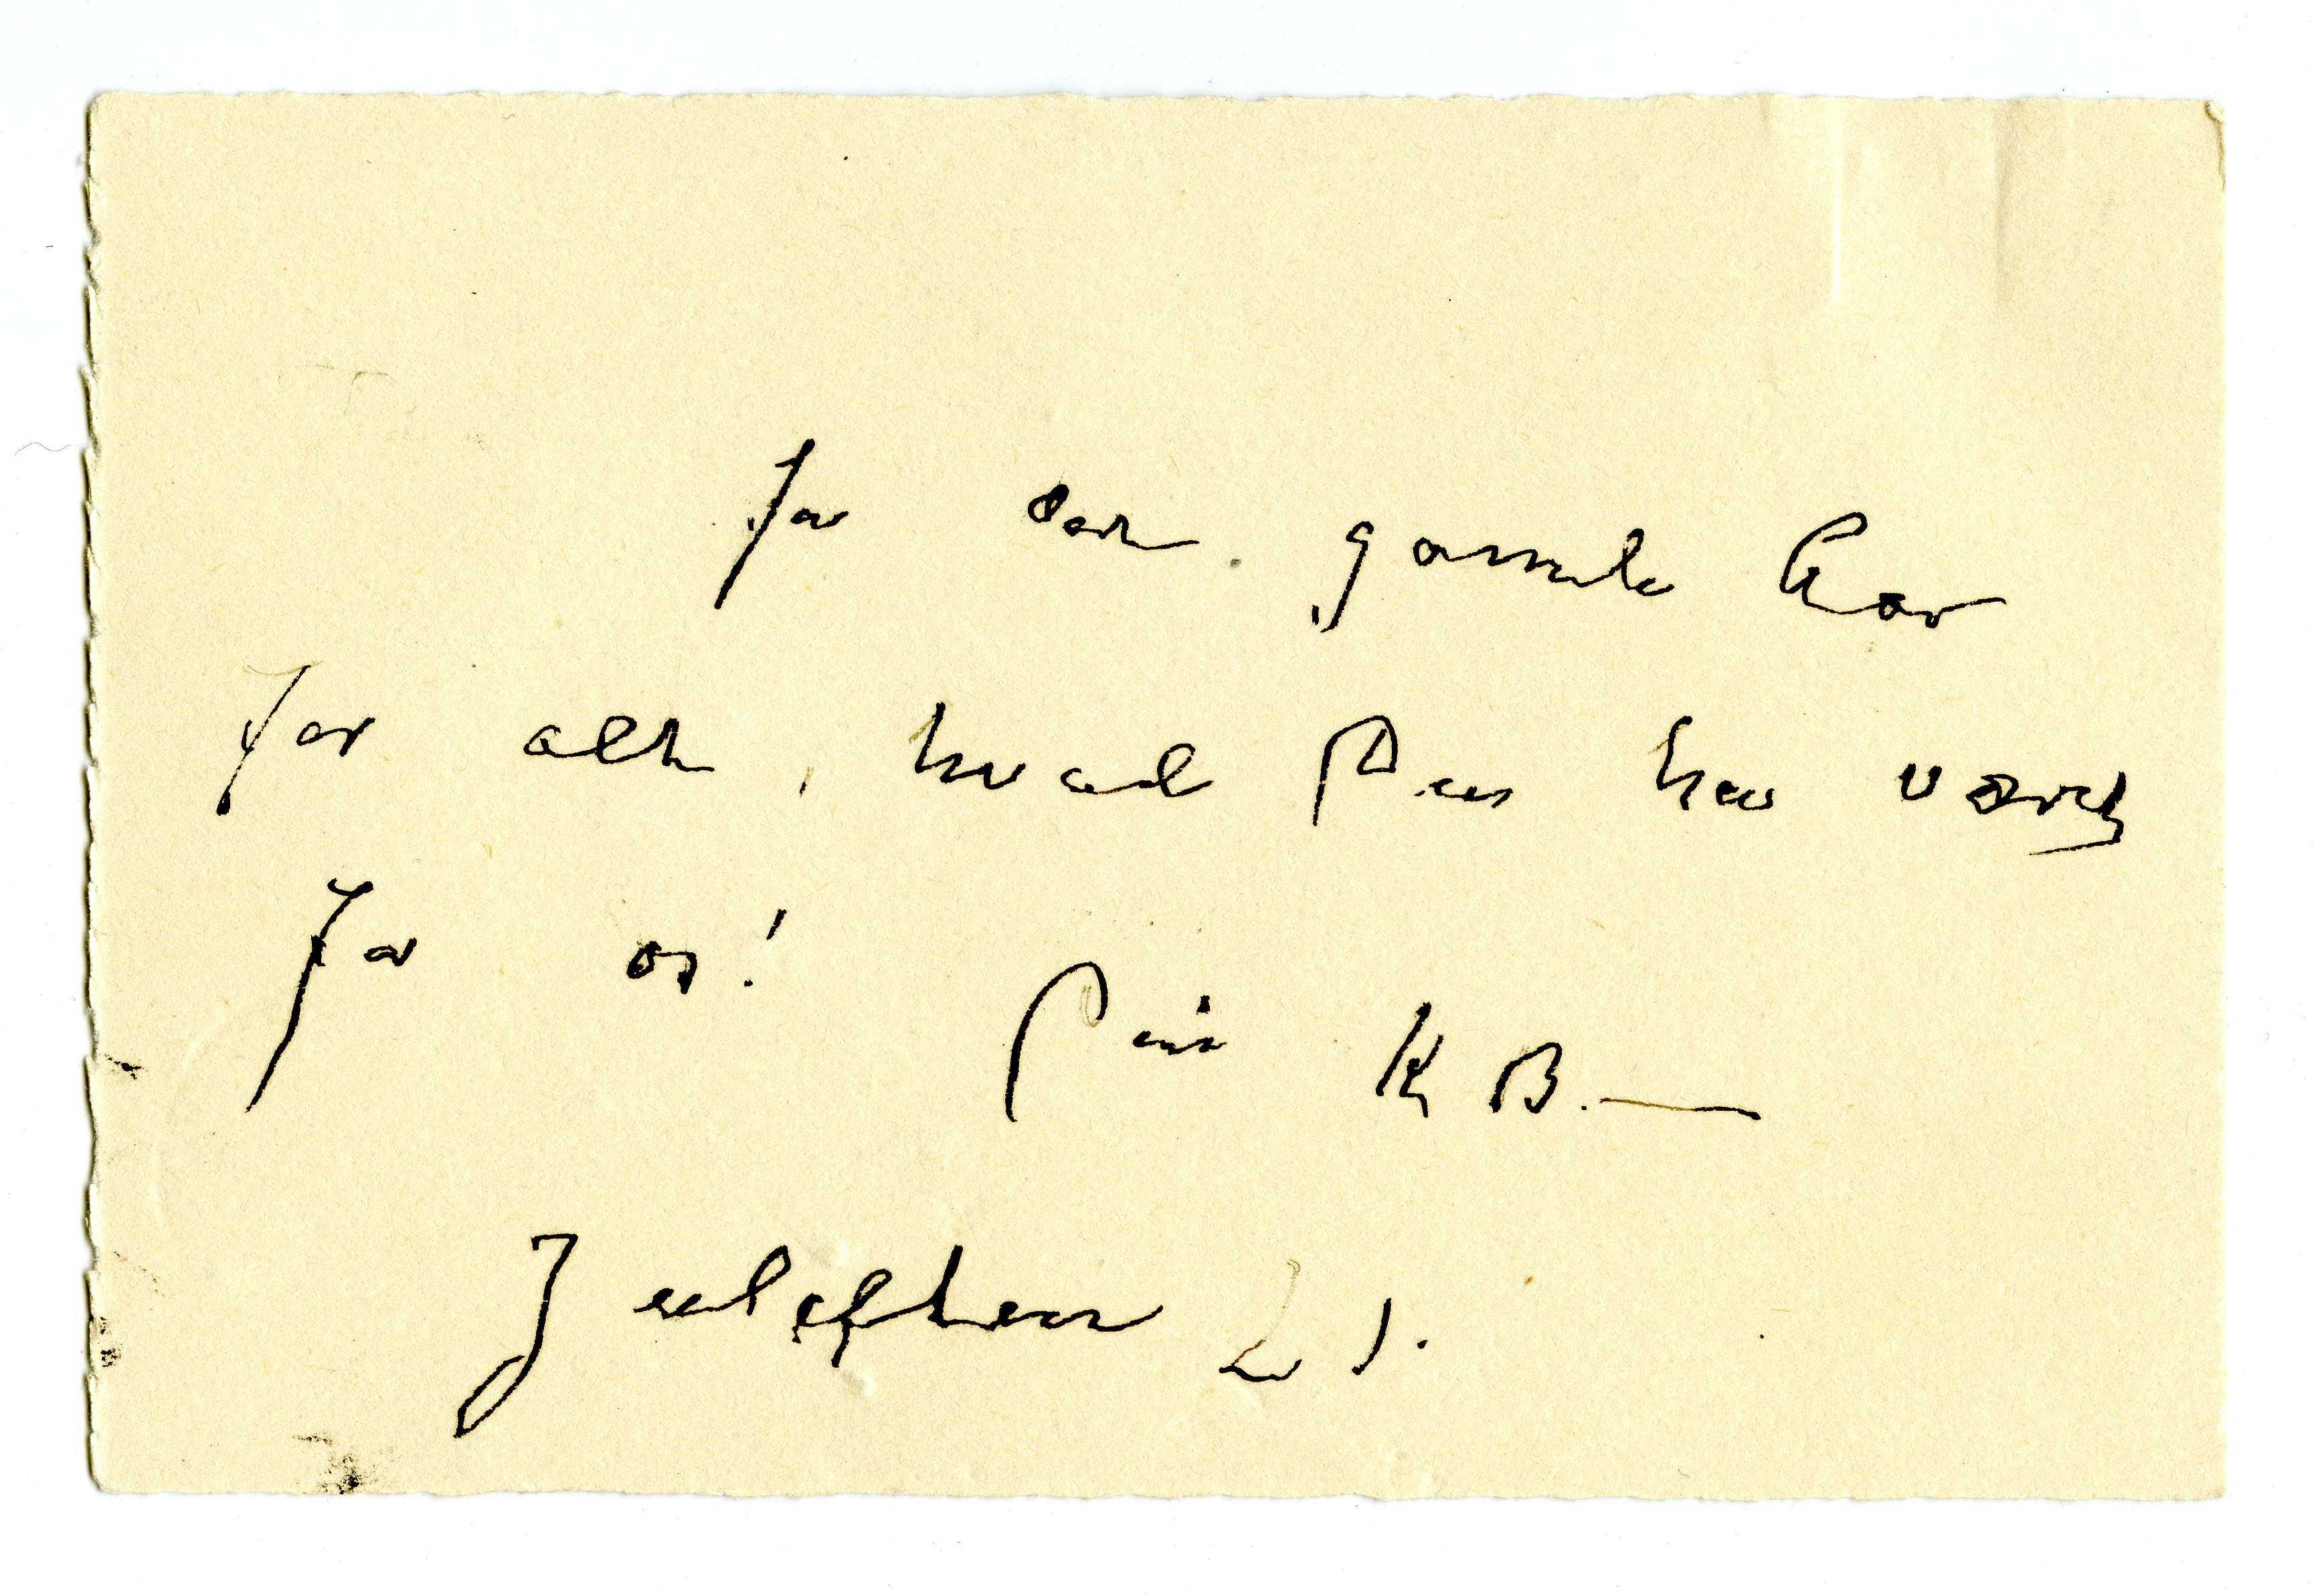 for det gamle Aar
for alt, hvad Du har været
for os! Din KB.—
Julaften 21.